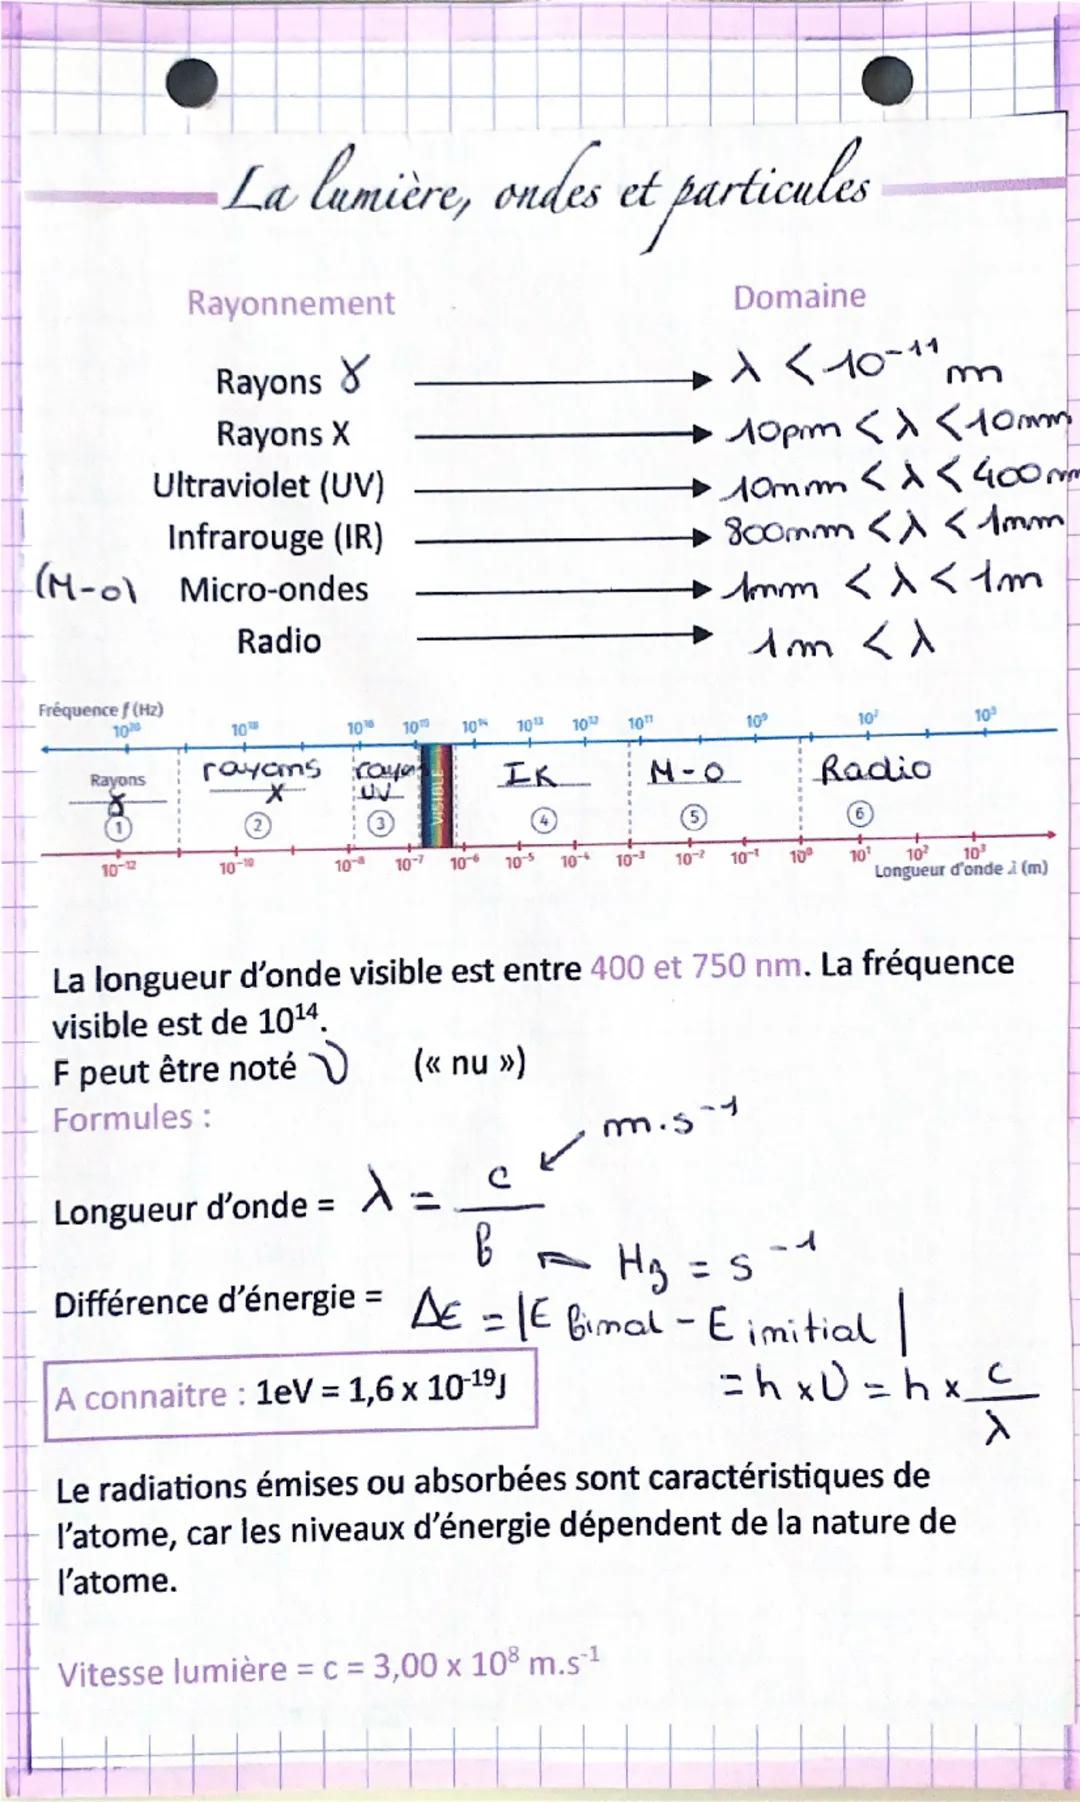 La lumière, ondes et particules
Rayonnement Domaine
Rayons γ → λ < 10⁻¹¹ m
Rayons X → 10pm < λ < 10nm
Ultraviolet (UV) → 10nm < λ < 400nm
Infrarouge (IR) → 800nm < λ < 1mm
(M-O) Micro-ondes → 1mm < λ < 1m
Radio → 1m < λ
Fréquence f (Hz)
10²⁰ 10¹⁸ 10¹⁶ 10¹⁵ 10¹⁴ 10¹³ 10¹² 10¹¹ 10⁹ 10⁷ 10⁵
Rayons γ rayons X rayons UV VISIBLE IR M-O Radio
1 2 3 4 5 6
10⁻¹² 10⁻¹⁰ 10⁻⁸ 10⁻⁷ 10⁻⁶ 10⁻⁵ 10⁻⁴ 10⁻³ 10⁻² 10⁻¹ 10⁰ 10¹ 10² 10³
Longueur d'onde λ (m)
La longueur d'onde visible est entre 400 et 750 nm. La fréquence
visible est de 10¹⁴.
F peut être noté ν (« nu »)
Formules :
m.s⁻¹
Longueur d'onde = λ = c / f
Hz = s⁻¹
Différence d'énergie = ΔE = |E final - E initial|
= h x ν = h x c / λ
A connaitre : 1eV = 1,6 x 10⁻¹⁹J
Le radiations émises ou absorbées sont caractéristiques de
l'atome, car les niveaux d'énergie dépendent de la nature de
l'atome.
Vitesse lumière = c = 3,00 x 10⁸ m.s⁻¹